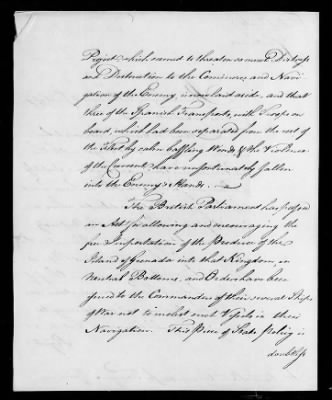 Project which seemed to threaten so much Distress
and Destruction to the Commerce and Navi
gation of the Enemy, is now laid aside, and that
three of the Spanish Transports, with Troops on
board, which had been separated from the rest of
the Fleet by calm baffling Winds, & the Violence
of the Current have unfortunately fallen
into the Enemy's Hands.
The British Parliament has passed
an Act for allowing and encouraging the
free Importation of the Produce of the
Island of Grenada into that Kingdom, in
Neutral Bottoms, and Orders have been
issued to the Commanders of their several Ships
of War not to molest such Vessels in their
Navigation. This Piece of State Policy is
doubtless